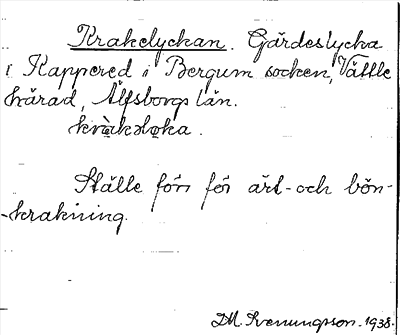 Krakelyckan. Gärdeslycka
i Kappered i Bergum socken, Vättle
härad, Älfsborgs län.
Ställe förr för ärt- och bön-
-krakning.
D.M. Svenungsson. 1938.